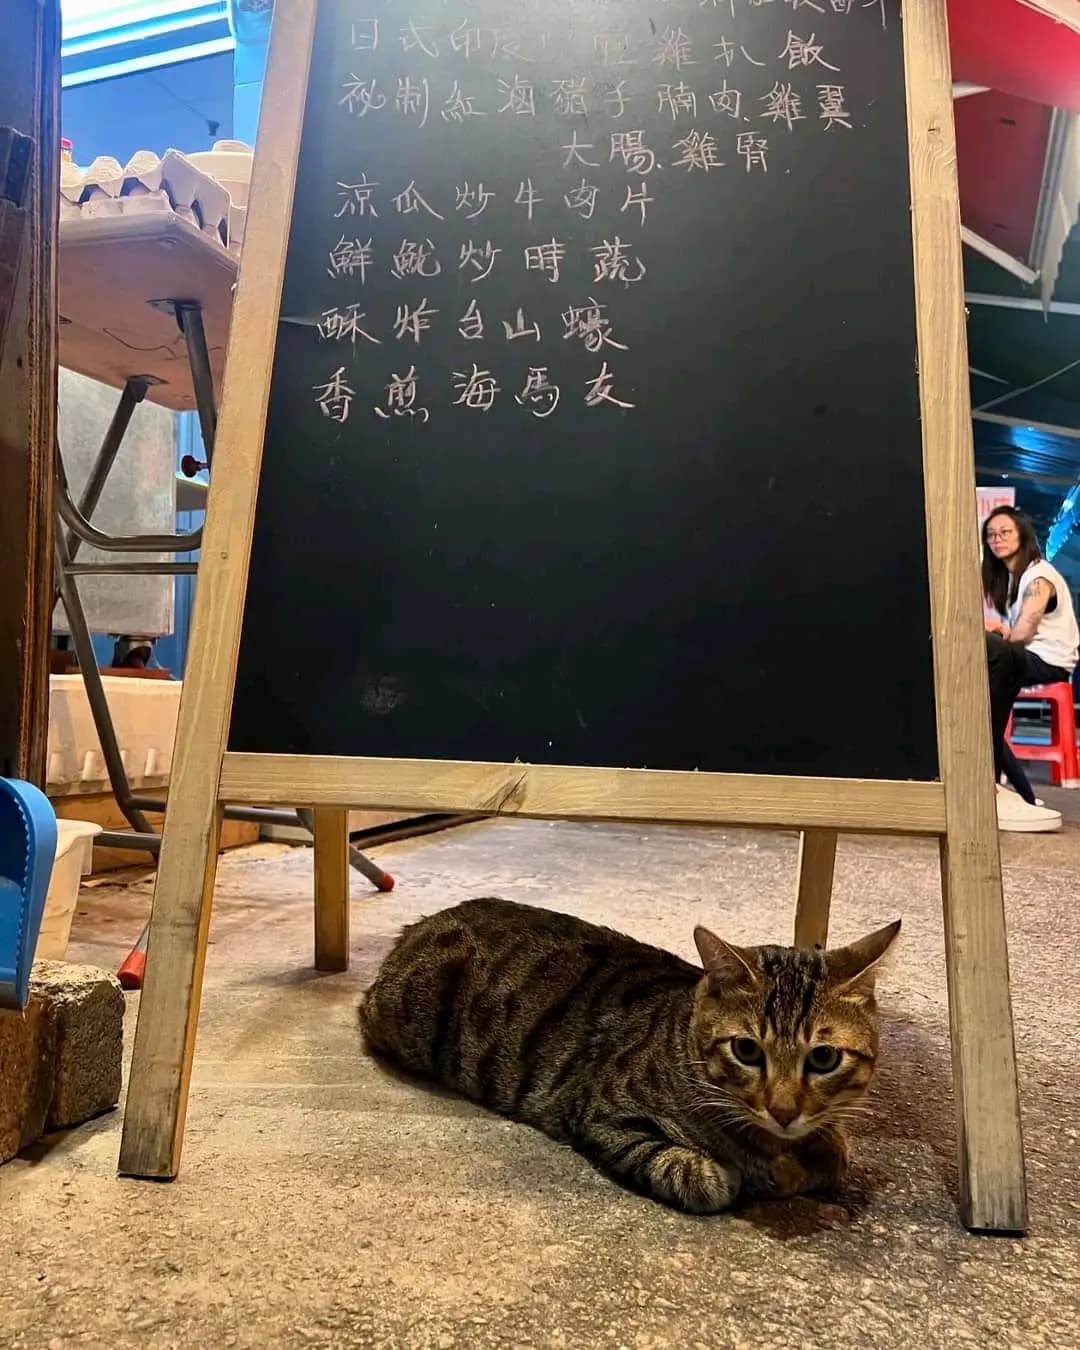 日式印度 雞扒飯
祕制紅滷豬手腩肉、雞翼
大腸、雞腎
凉瓜炒牛肉片
鮮魷炒時蔬
酥炸台山蠔
香煎海馬友